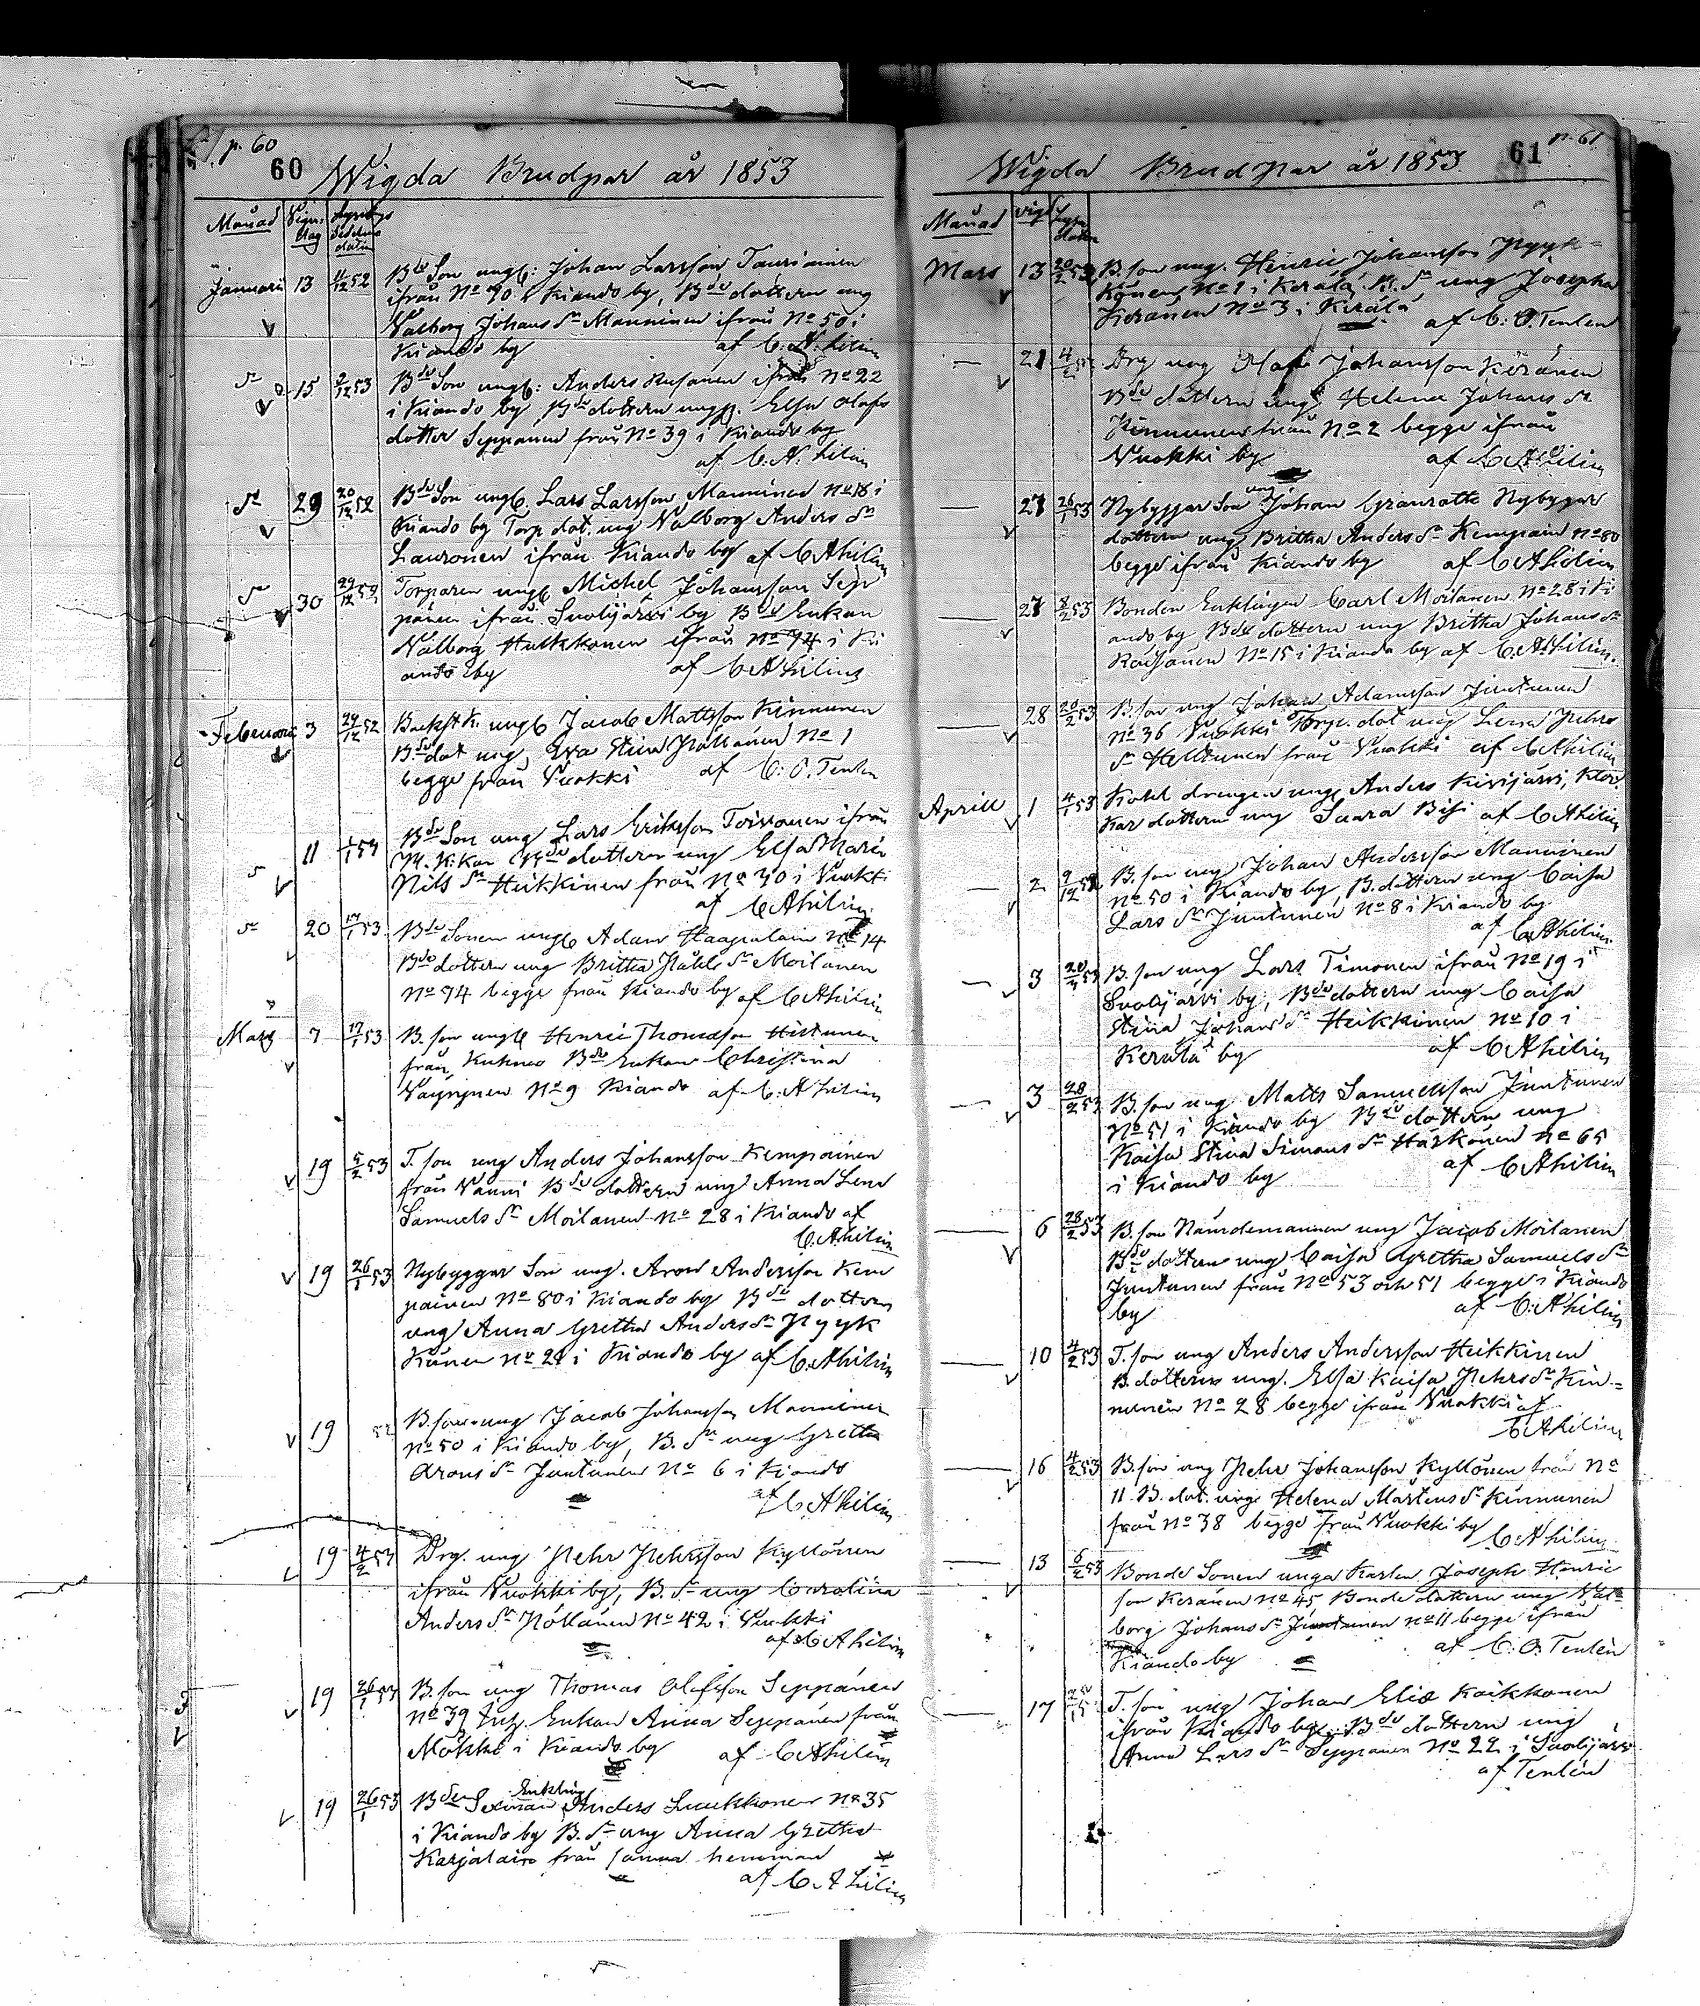 p. 60
60 Wigda Brudpar år 1853
Månad Vigns dag
Januarii 13 4/12 52 Bde Son ungk: Johan Larsson Tauriainen
ifrån No 90 i Kiando by, Bde dottern ung
Valborg Johans dr Manninen ifrån No 50 i
Kiando by af C. A. Lilius
dr 15 9/12 53 Bde Son ungk: Anders Rusanen ifrån No 22
i Kiando by Bde dottern ungp. Elsa Olofs
dotter Seppänen från No 39 i Kiando by
af C. A. Lilius
dr 29 20/12 52 Bde Son ungk Lars Larsson Manninen No 18 i
Kiando by Torp dot. ung Valborg Anders dr
Lauronen ifrån Kiando by af C A Lilius
dr 30 29/12 52 Torparen ungk Michel Johansson Sep
pänen ifrån Suolijärvi by Bde Enkan
Valborg Hulkkonen ifrån No 74 i Ki
ando by af C A Lilius
Februarii 3 29/12 52 ungk Jacob Mattsson Kinnunen
Bde dot ung Eva Stina Pållånen No 1
begge från Vuokki af C. O. Tenlen
dr 11 Bde Son ung Lars Eriksson Toivonen ifrån
Bde dottern ung Elsa Maria
Nils dr Heikkinen från No 30 i Vuokki
af C A Lilius
dr 20 17/1 53 Bde Sonen ungk Adam Haapalain No 14
Bde dottern ung Britha Påhls dr Moilanen
No 74 begge från Kiando by af C A Lilius
Mars 7 17/1 53 B. son ungk Henric Thomasson Hiltunen
från Kuhmo Bde Enkan Christina
Väyrynen No 9 Kiando af C. A Lilius
19 5/2 53 T. son ung Anders Johansson Kempainen
från Bde dottern ung Anna Lena
Samuels dr Moilanen No 28 i Kiando af
C. A. Lilius
19 26/1 53 Nybyggar Son ung. Aron Andersson Kem
painen No 80 i Kiando by Bde dottern
ung Anna Gretha Anders dr Pyyk
könen No 24 i Kiando by af C. A Lilius
19 52 B. son ung Jacob Johansson Manninen
No 50 i Kiando by, B. dr ung Gretha
Arons dr Juntunen No 6 i Kiando
af C A Lilius
19 4/2 53 Drg. ung Pehr Pehrsson Kyllönen
ifrån Vuokki by, B. dr ung Carolina
Anders dr Pöllänen No 42 i Vuokki
af C A Lilius
19 26/1 53 B. son ung Thomas Olofsson Seppänen
No 39 Enkan Anna Seppänen från
Mökki i Kiando by af C A Lilius
19 26/1 53 Bden Enkling Anders Luukkonen No 35
i Kiando by B. dr ung Anna Gretha
Karjalain från samma hemman
af C. A Lilius
p. 61
Wigda Brudpar år 1853 61
Månad
Mars 13 20/2 53 B. son ung. Henric Johansson Pyyk=
könen No 1 i Kerälä, B. dr ung Josepha
Keränen No 3 i Kerälä
af C. O. Tenlen
— 21 4/2 Drg ung Olof Johansson Keränen
Bde dottern ung Helena Johans dr
Kinnunen från No 2 begge ifrån
Vuokki by af C A Lilius
— 27 26/1 53 Nybyggar Son ung Johan Granrotte Nybygar
dottern ung Britha Anders dr Kempain No 80
begge ifrån Kiando by af C A Lilius
— 27 2/2 53 Bonden Enklingen Carl Moilanen No 28 i Ki
ando by Bde dottern ung Britha Johans dr
No 15 i Kiando by af C. A Lilius.
— 28 20/2 53 B. son ung Johan Adamsson Juntunen
No 36 Vuokki dot ung Lena Pehrs
dr Heikkinen från Vuokki af C A Lilius
Aprill 1 4/1 53 drengen ung Anders Kivijärvi, Kloc
kar dottern ung Saara Bisi af C A Lilius
— 2 9/12 52 B. son ung Johan Andersson Manninen
No 50 i Kiando by, B. dottern ung Caisa
Lars dr Juntunen No 8 i Kiando by
af C A Lilius
— 3 B. son ung Lars Timonen ifrån No 19 i
Suolijärvi by, Bde dottern ung Caisa
Stina Johans dr Heikkinen No 10 i
Kerälä by af C A Lilius
— 3 28/2 53 B. son ung Matts Samuelsson Juntunen
No 51 i Kiando by Bde dottern ung
Kaisa Stina Simons dr Härkönen No 65
i Kiando by af C A Lilius
— 6 28/2 53 B. son Nämdemannen ung Jacob Moilanen
Bde dottern ung Caisa Gretha Samuels dr
Juntunen från No 53 och 51 begge i Kiando
by af C. A Lilius
— 10 4/2 53 T. son ung Anders Andersson Heikkinen
B. dottern ung. Elsa Kaisa Pehrs dr Kin=
nunen No 28 begge ifrån Vuokki af
C A Lilius
— 16 4/2 53 B. son ung Pehr Johansson Kyllönen från No
11 B. dot. ung Helena Martens dr Kinnunen
från No 38 begge från Vuokki by
C A Lilius
— 13 6/2 53 Bonde Sonen unga Karlen Joseph Henric
son Keränen No 45 Bonde dottern ung Val=
borg Johans dr Juntunen No 11 begge ifrån
Kiando by af C. O. Tenlen
— 17 T. son ung Johan Elia Kaikkonen
ifrån Kiando by, Bde dottern ung
Anna Lars dr Seppänen No 22 i Suolijärvi
af Tenlen